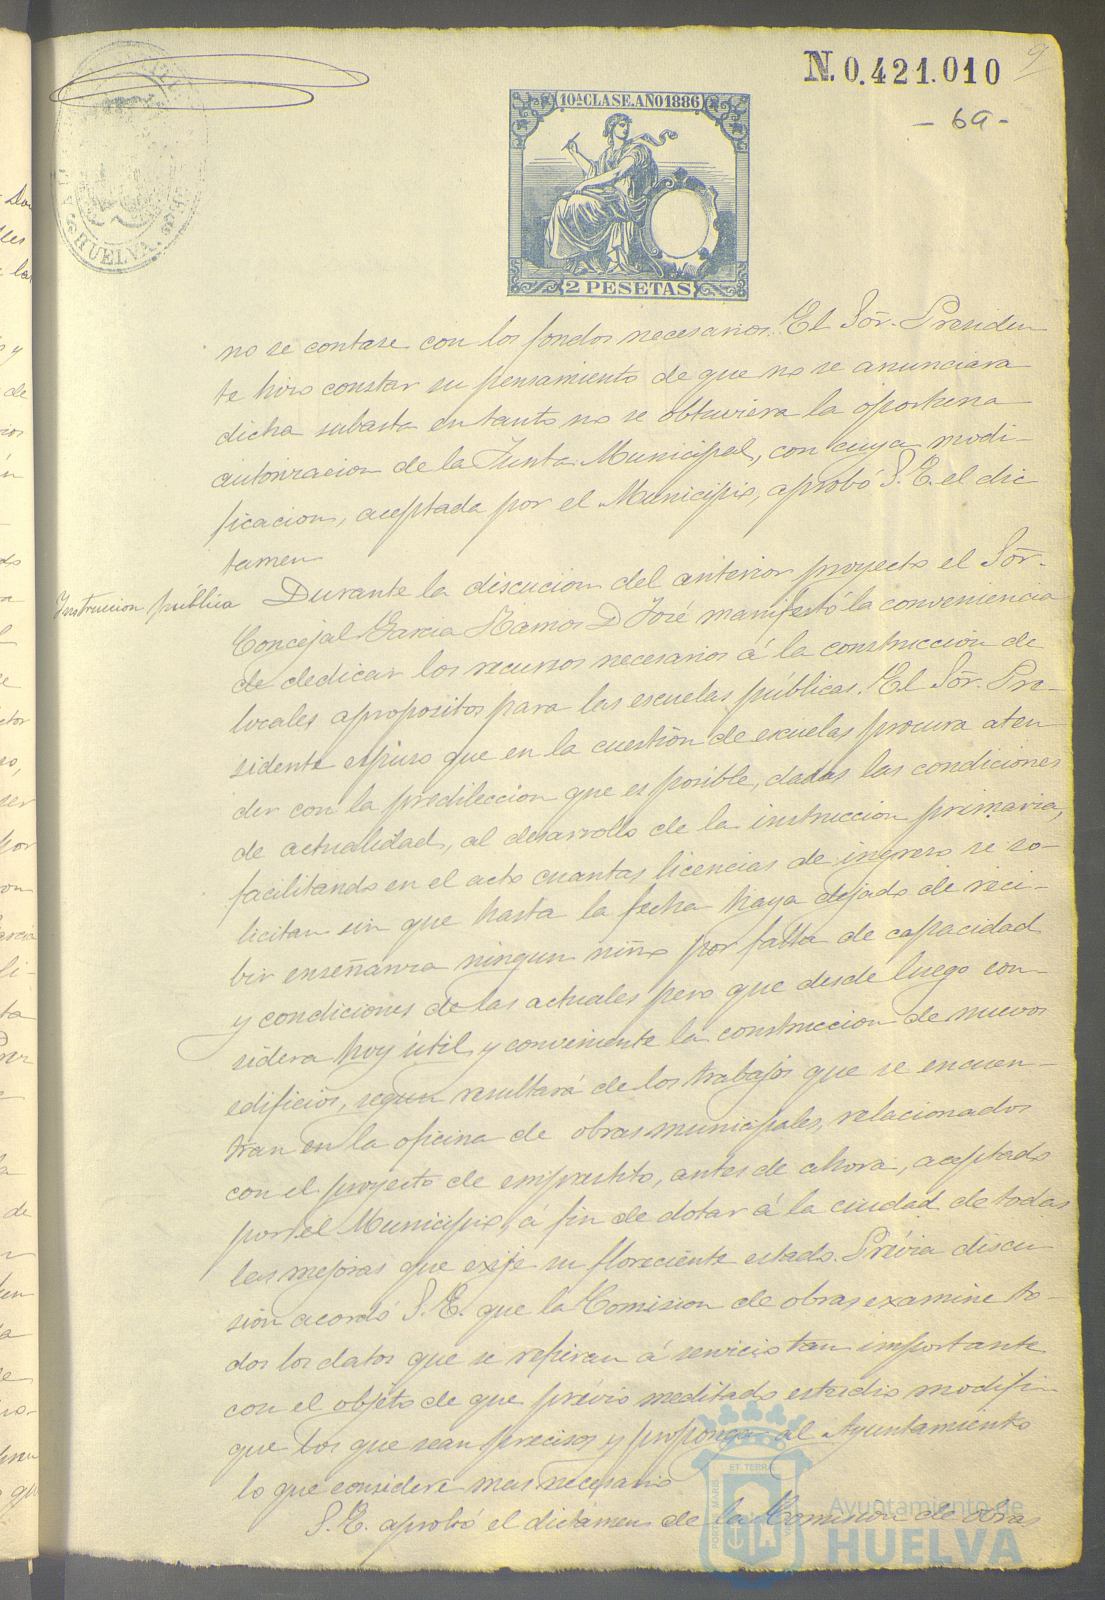 N. 0.421.010
9
- 69 -
10ª CLASE. AÑO 1886
2 PESETAS
HUELVA.
no se contase con los fondos necesarios. El Sor. Presiden
te hizo constar su pensamiento de que no se anunciara
dicha subasta en tanto no se obtuviera la oportuna
autorizacion de la Junta Municipal, con cuya modi-
ficacion, aceptada por el Municipio, aprobó S. E. el dic
tamen
Instruccion pública
Durante la discucion del anterior proyecto el Sor.
Concejal Garcia Ramos D José manifestó la conveniencia
de dedicar los recursos necesarios á la construccion de
locales apropositos para las escuelas públicas. El Sor. Pre-
sidente espuso que en la cuestion de escuelas procura aten
der con la predileccion que es posible, dadas las condiciones
de actualidad, al desarrollo de la instruccion primaria,
facilitando en el acto cuantas licencias de ingreso se so-
licitan sin que hasta la fecha haya dejado de reci-
bir enseñanza ningun niño por falta de capacidad
y condiciones de las actuales pero que desde luego con-
sidera hoy útil y conveniente la construccion de nuevos
edificios, segun resultará de los trabajos que se encuen-
tran en la oficina de obras municipales, relacionados
con el proyecto de emprestito, antes de ahora, aceptado
por el Municipio, á fin de dotar á la ciudad de todas
las mejoras que exije su floreciente estado. Prévia discu
sion acordó S. E. que la Comision de obras examine to-
dos los datos que se refieran á servicio tan importante
con el objeto de que prévio meditado estudio modifi
que los que sean precisos y proponga al Ayuntamiento
lo que considere mas necesario
S. E. aprobó el dictámen de la Comision de obras
Ayuntamiento de
HUELVA